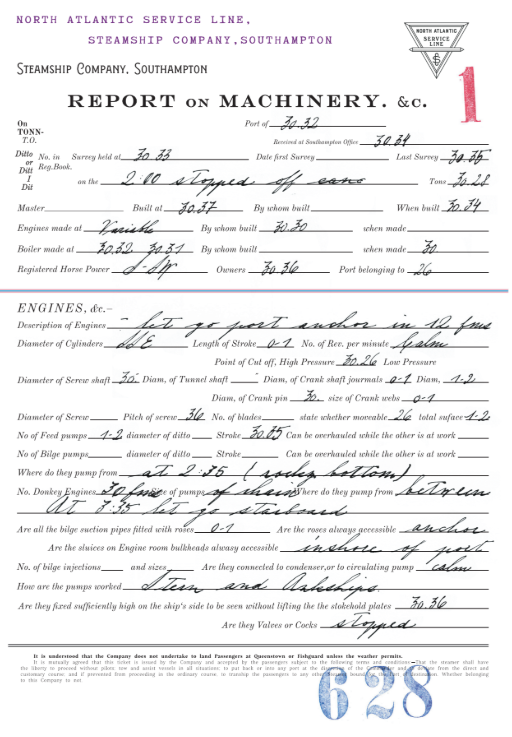 NORTH ATLANTIC SERVICE LINE,
STEAMSHIP COMPANY,SOUTHAMPTON
STEAMSHIP COMPANY, SOUTHAMPTON
NORTH ATLANTIC
SERVICE
LINE
1
REPORT ON MACHINERY. &c.
On Port of 30.32
TONN-
T.O. Received at Southampton Office 30.34
Ditto No. in Survey held at 30.33 Date first Survey Last Survey 30.35
or Reg.Book.
Ditt
I on the 2:00 stopped off Tons 30.28
Dit
Master Built at 30.37 By whom built When built 30.34
Engines made at Variable By whom built 30.30 when made
Boiler made at 30.32 30.31 By whom built when made 30
Registered Horse Power Owners 30.36 Port belonging to 26
ENGINES, &c.–
Description of Engines let go port anchor in 12 fms
Diameter of Cylinders SSE Length of Stroke 0-1 No. of Rev. per minute Calm
Point of Cut off, High Pressure 30.26 Low Pressure
Diameter of Screw shaft 30. Diam, of Tunnel shaft Diam, of Crank shaft journals 0-1 Diam, 1-2
Diam, of Crank pin 30. size of Crank webs 0-1
Diameter of Screw Pitch of screw 36 No. of blades state whether moveable 26 total suface 1-2
No of Feed pumps 1-2 diameter of ditto Stroke 30.35 Can be overhauled while the other is at work
No of Bilge pumps diameter of ditto Stroke Can be overhauled while the other is at work
Where do they pump from at 2:35 (rocky bottom)
No. Donkey Engines 30 fms Size of pumps of chain Where do they pump from between
At 3:35 let go starboard
Are all the bilge suction pipes fitted with roses 0-1 Are the roses always accessible anchor
Are the sluices on Engine room bulkheads alwasy accessible inshore of port
No. of bilge injections and sizes Are they connected to condenser,or to circulating pump calm
How are the pumps worked Stern and
Are they fixed sufficiently high on the ship's side to be seen without lifting the the stokehold plates 30.36
Are they Valves or Cocks stopped
It is understood that the Company does not undertake to land Passengers at Queenstown or Fishguard unless the weather permits.
It is mutually agreed that this ticket is issued by the Company and accepted by the passengers subject to the following terms and conditions—That the steamer shall have
628